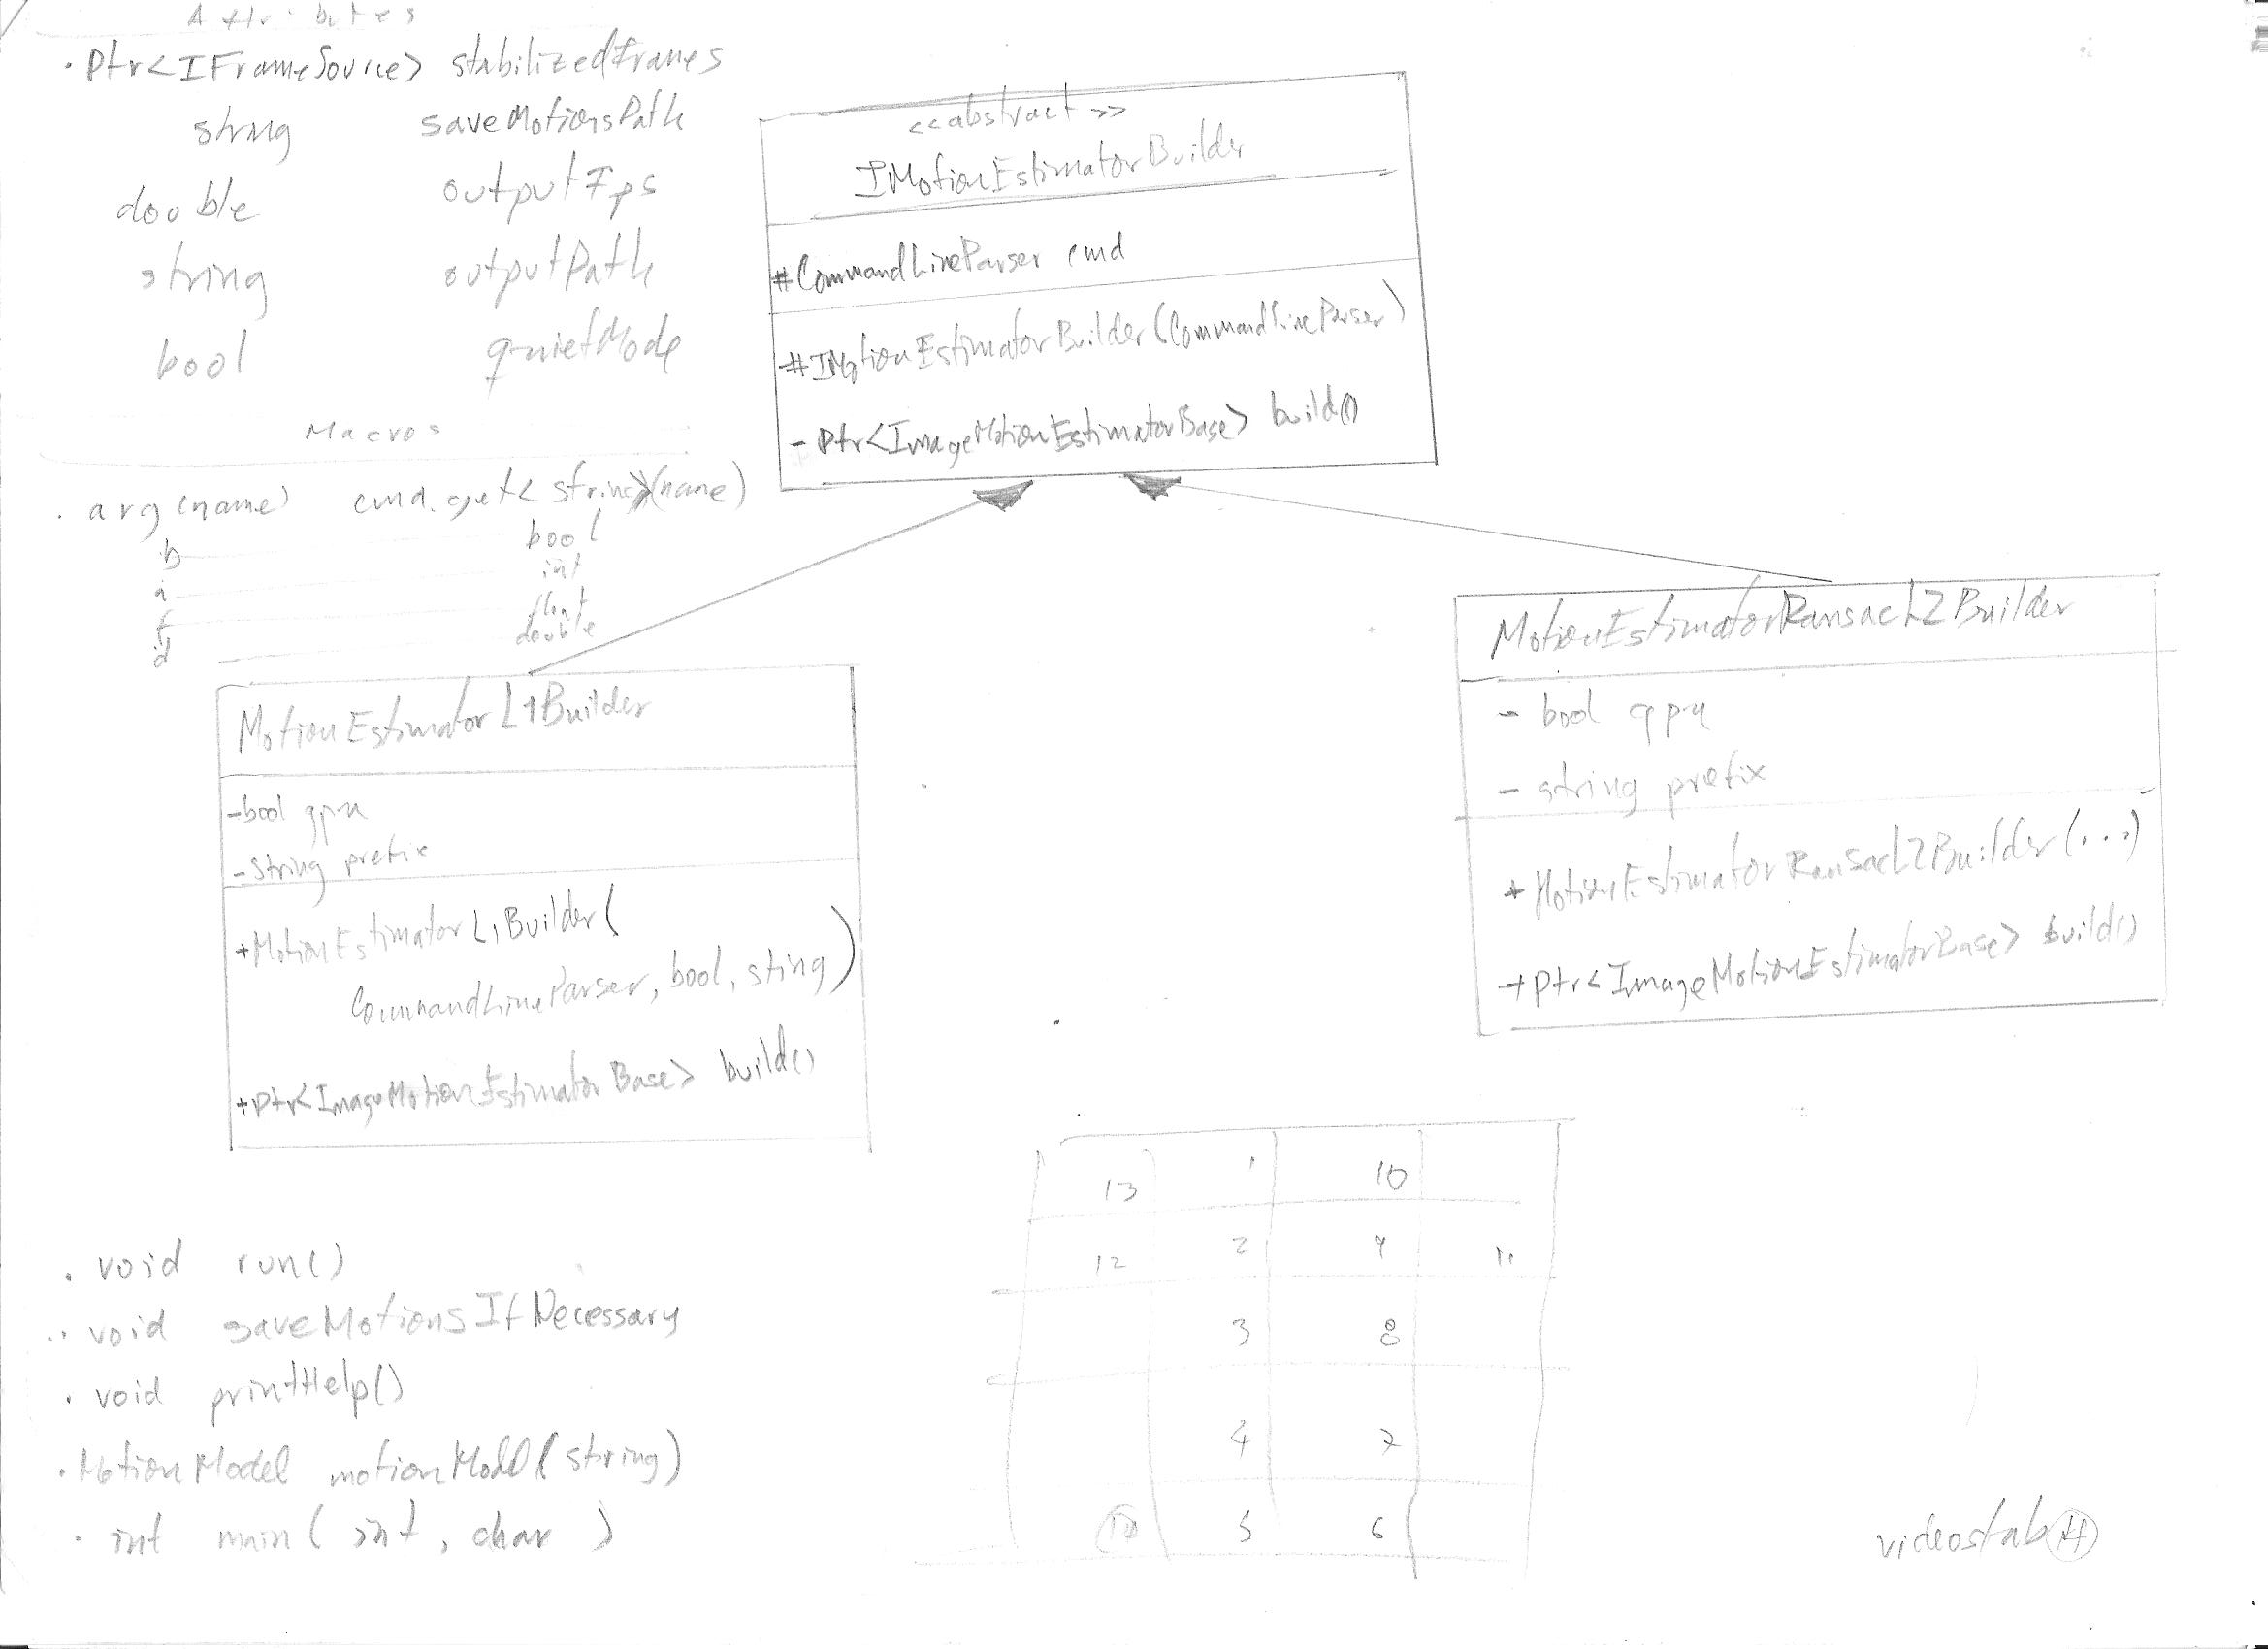 Attributes
. Ptr<IFrameSource> stabilizedFrames
string saveMotionsPath
double outputFps
string outputPath
bool quietMode
Macros
. arg (name) cmd.get<string>(name)
b bool
i int
f float
d double
<<abstract>>
IMotionEstimatorBuilder
#CommandLineParser cmd
#IMotionEstimatorBuilder(CommandLineParser)
- Ptr<ImageMotionEstimatorBase> build()
MotionEstimatorL1Builder
-bool gpu
-string prefix
+MotionEstimatorL1Builder(
CommandLineParser, bool, sting)
+Ptr<ImageMotionEstimatorBase> build()
MotionEstimatorRansacL2Builder
- bool gpu
- string prefix
+MotionEstimatorRansacL2Builder(...)
+Ptr<ImageMotionEstimatorBase> build()
. void run()
.. void saveMotionsIfNecessary
. void printHelp()
. MotionModel motionModel(string)
. int main( int, char )
13 1 10
12 2 9 11
3 8
4 7
5 6
videostab